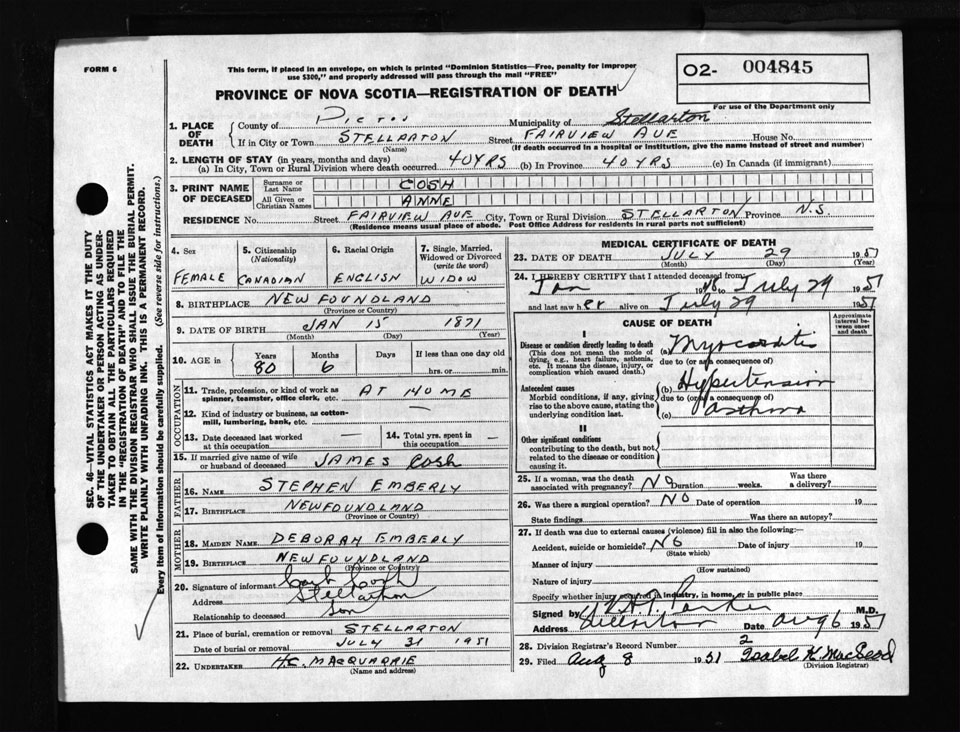 FORM 6
This form, if placed in an envelope, on which is printed "Dominion Statistics—Free, penalty for improper
use $300," and properly addressed will pass through the mail "FREE"
O2- 004845
For use of the Department only
PROVINCE OF NOVA SCOTIA—REGISTRATION OF DEATH
SEC. 46—VITAL STATISTICS ACT MAKES IT THE DUTY
OF THE UNDERTAKER OR PERSON ACTING AS UNDER-
TAKER TO OBTAIN ALL THE PARTICULARS REQUIRED
IN THE "REGISTRATION OF DEATH" AND TO FILE THE
SAME WITH THE DIVISION REGISTRAR WHO SHALL ISSUE THE BURIAL PERMIT.
WRITE PLAINLY WITH UNFADING INK. THIS IS A PERMANENT RECORD.
Every item of Information should be carefully supplied. (See reverse side for instructions.)
1. PLACE OF DEATH County of Pictou Municipality of Stellarton
If in City or Town STELLARTON Street FAIRVIEW AUE House No.
(Name) (If death occurred in a hospital or institution, give the name instead of street and number)
2. LENGTH OF STAY (in years, months and days)
(a) In City, Town or Rural Division where death occurred 40YRS (b) In Province 40YRS (c) In Canada (if immigrant)
3. PRINT NAME OF DECEASED Surname or Last Name COSH
All Given or Christian Names ANNE
RESIDENCE No. Street FAIRVIEW AUE City, Town or Rural Division STELLARTON Province N.S.
(Residence means usual place of abode. Post Office Address for residents in rural parts not sufficient)
4. Sex 5. Citizenship (Nationality) 6. Racial Origin 7. Single, Married, Widowed or Divorced (write the word)
FEMALE CANADIAN ENGLISH WIDOW
8. BIRTHPLACE NEWFOUNDLAND
(Province or Country)
9. DATE OF BIRTH JAN 15 1871
(Month) (Day) (Year)
10. AGE in Years Months Days If less than one day old
80 6 hrs. or min.
OCCUPATION
11. Trade, profession, or kind of work as spinner, teamster, office clerk, etc. AT HOME
12. Kind of industry or business, as cotton-mill, lumbering, bank, etc. —
13. Date deceased last worked at this occupation — 14. Total yrs. spent in this occupation —
15. If married give name of wife or husband of deceased JAMES Cosh
FATHER
16. NAME STEPHEN EMBERLY
17. BIRTHPLACE NEWFOUNDLAND
(Province or Country)
MOTHER
18. MAIDEN NAME DEBORAH EMBERLY
19. BIRTHPLACE NEWFOUNDLAND
(Province or Country)
20. Signature of informant Cosh
Address Stellarton
Relationship to deceased Son
21. Place of burial, cremation or removal STELLARTON
Date of burial or removal JULY 31 1951
22. UNDERTAKER H.C. MACQUARRIE
(Name and address)
MEDICAL CERTIFICATE OF DEATH
23. DATE OF DEATH JULY 29 1951
(Month) (Day) (Year)
24. I HEREBY CERTIFY that I attended deceased from
Jan 19 to July 29 1951
and last saw her alive on July 29 1951
CAUSE OF DEATH
Approximate interval between onset and death
I
Disease or condition directly leading to death
(This does not mean the mode of dying, e.g., heart failure, asthenia, etc. It means the disease, injury, or complication which caused death.)
(a) Myocarditis
due to (or as a consequence of)
Antecedent causes
Morbid conditions, if any, giving rise to the above cause, stating the underlying condition last.
(b) Hypertension
due to (or as a consequence of)
(c) asthma
II
Other significant conditions
contributing to the death, but not related to the disease or condition causing it.
25. If a woman, was the death associated with pregnancy? NO Duration weeks. Was there a delivery?
26. Was there a surgical operation? NO Date of operation 19
State findings Was there an autopsy?
27. If death was due to external causes (violence) fill in also the following:—
Accident, suicide or homicide? NO Date of injury 19
(State which)
Manner of injury
(How sustained)
Nature of injury
Specify whether injury occurred in industry, in home, or in public place
Signed by Parker M.D.
Address Stellarton Date Aug 6 1951
28. Division Registrar's Record Number 2
29. Filed Aug 8 1951 Isabel K. MacLeod
(Division Registrar)